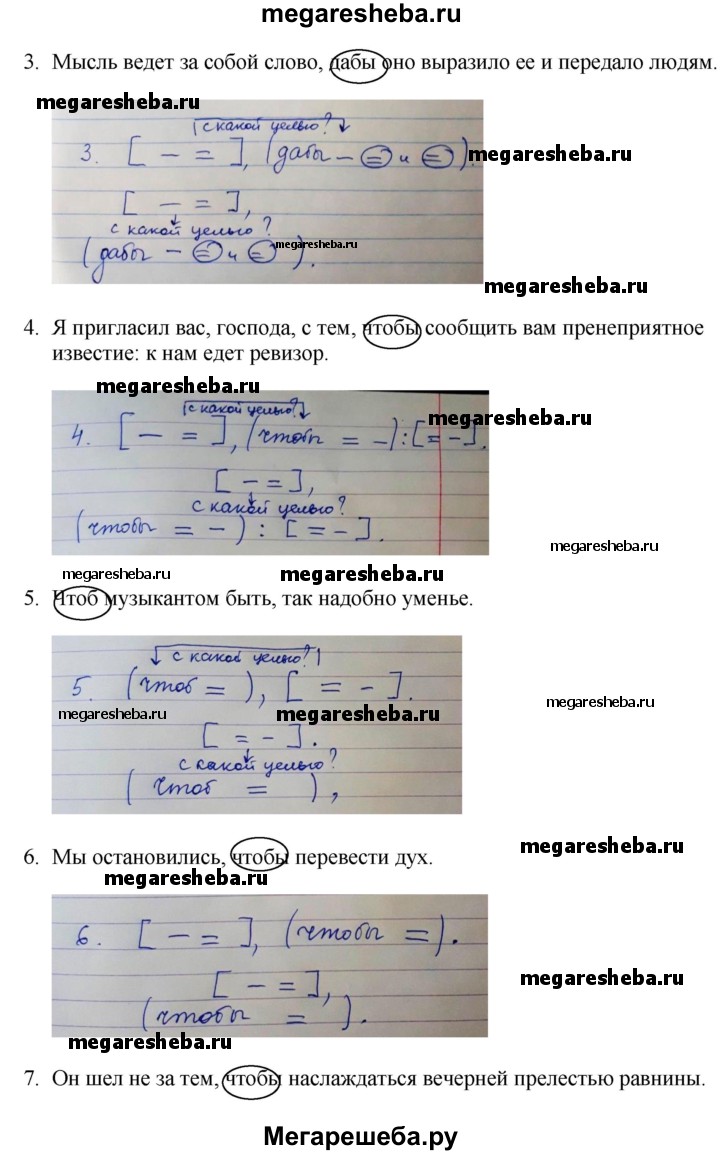 megaresheba.ru
3. Мысль ведет за собой слово, дабы оно выразило ее и передало людям.
megaresheba.ru
с какой целью?
3. [ — = ], (дабы — = и = ).
megaresheba.ru
[ — = ],
с какой целью?
megaresheba.ru
(дабы — = и = ).
megaresheba.ru
4. Я пригласил вас, господа, с тем, чтобы сообщить вам пренеприятное
известие: к нам едет ревизор.
megaresheba.ru
с какой целью?
4. [ — = ], (чтобы = —) : [ = — ].
megaresheba.ru
[ — = ],
с какой целью?
(чтобы = —) : [ = — ].
megaresheba.ru
megaresheba.ru
megaresheba.ru
5. Чтоб музыкантом быть, так надобно уменье.
с какой целью?
5. (чтоб = ), [ = — ].
megaresheba.ru
megaresheba.ru
megaresheba.ru
[ = — ].
с какой целью?
( чтоб = ),
6. Мы остановились, чтобы перевести дух.
megaresheba.ru
megaresheba.ru
6. [ — = ], (чтобы = ).
[ — = ],
megaresheba.ru
(чтобы = ).
megaresheba.ru
7. Он шел не за тем, чтобы наслаждаться вечерней прелестью равнины.
Мегарешеба.ру